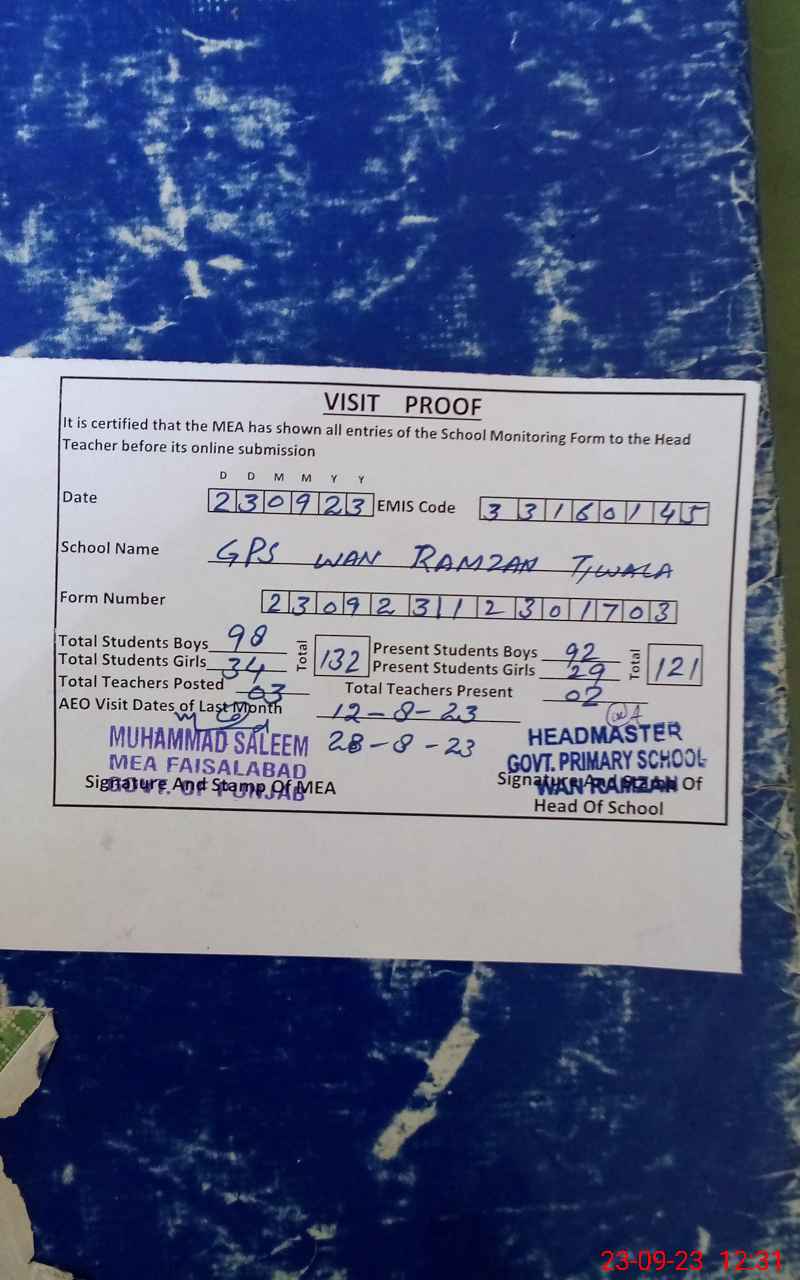 VISIT PROOF
It is certified that the MEA has shown all entries of the School Monitoring Form to the Head
Teacher before its online submission
D D M M Y Y
Date 230923 EMIS Code 33160145
School Name GPS WAN RAMZAN
Form Number 230923112301703
Total Students Boys 98 Total 132 Present Students Boys 92 Total 121
Total Students Girls 34 Present Students Girls 29
Total Teachers Posted 03 Total Teachers Present 02
AEO Visit Dates of Last Month 12-8-23
28-8-23
MUHAMMAD SALEEM
MEA FAISALABAD
GOVT. OF PUNJAB
Signature And Stamp Of MEA
HEADMASTER
GOVT. PRIMARY SCHOOL
WAN RAMZAN
Signature And Stamp Of
Head Of School
23-09-23 12:31